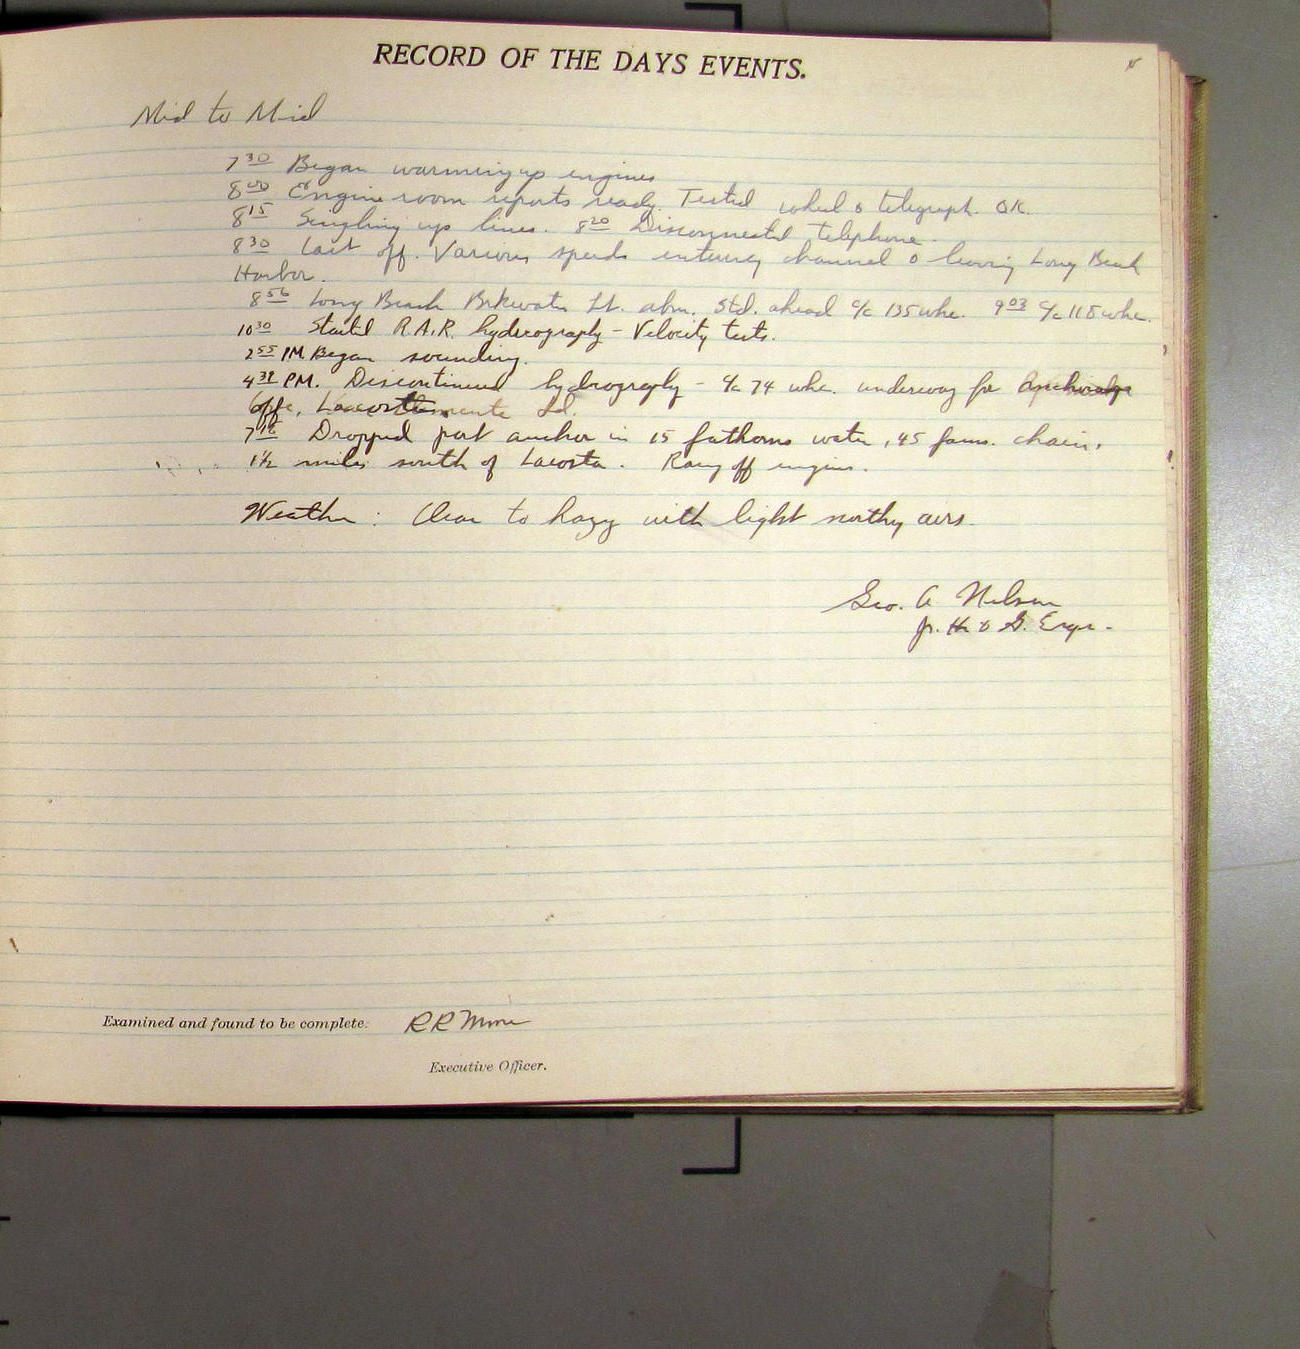 RECORD OF THE DAYS EVENTS.
Mid to Mid
7 30 Began warming up engines
8 00 Engine room reports ready. Tested wheel & telegraph. OK.
8 15 Singling up lines. 8 20 Disconnected telephone.
8 30 Cast off. Various speeds entering channel & leaving Long Beach
Harbor.
8 56 Long Beach Brkwater Lt. abm. Std. ahead c/c 135 whc. 9 03 c/c 118 whc.
10 30 Started R.A.R. hydrography - Velocity tests.
2 55 PM Began sounding.
4 38 PM. Discontinued hydrography - c/c 74 whc. underway for Anchorage
7 18 Dropped port anchor in 15 fathoms water, 45 fams. chain,
1½ miles south of Lacosta. Rang off engine.
Weather: Clear to hazy with light northy airs.
Geo. A Nelson
Jr. H & G. Engr.
Examined and found to be complete: RR Moore
Executive Officer.